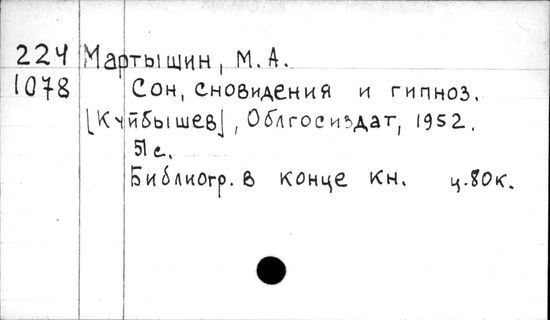 224 Мартышин, М.А.
1078 Сон, сновидения и гипноз.
[Куйбышев], Облгосиздат, 1952.
51 с.
Библиогр. в конце кн. ц.80к.